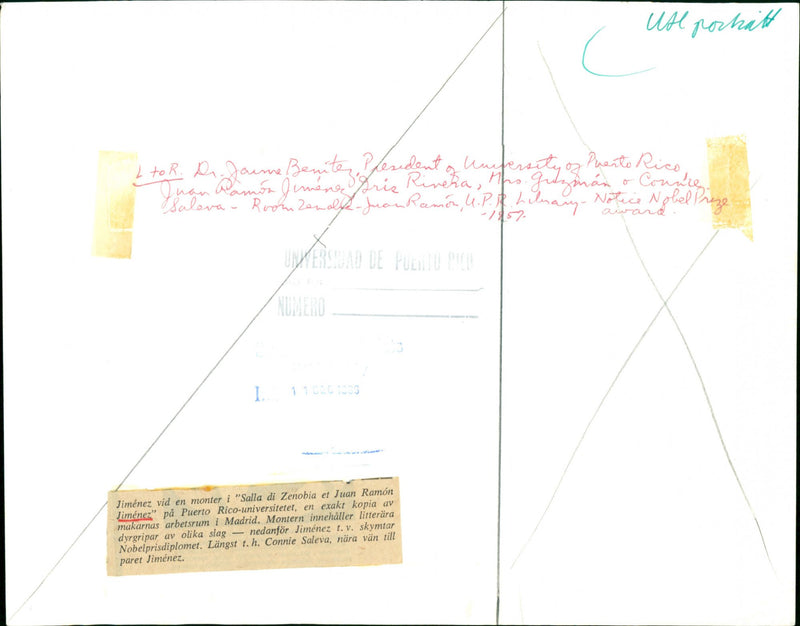 Utl portrátt
L to R. Dr. Jaime Benítez, President of University of Puerto Rico,
Juan Ramón Jiménez, Iris Rivera, Mrs Guzmán o Connie
Saleva - Room Zenobia - Juan Ramón, U.P.R. Library - Notice Nobel Prize
- 1957. award.
UNIVERSIDAD DE PUERTO RICO
NUMERO
11 DEC
Jiménez vid en monter i "Salla di Zenobia et Juan Ramón
Jiménez" på Puerto Rico-universitetet, en exakt kopia av
makarnas arbetsrum i Madrid. Montern innehåller litterära
dyrgripar av olika slag — nedanför Jiménez t. v. skymtar
Nobelprisdiplomet. Längst t. h. Connie Saleva, nära vän till
paret Jiménez.